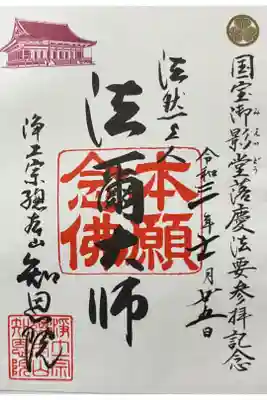 国宝御影堂落慶法要参拝記念
みえいどう
令和三年十一月廿五日
法然上人
法爾大師
本願
念佛
浄土宗總本山
知恩院